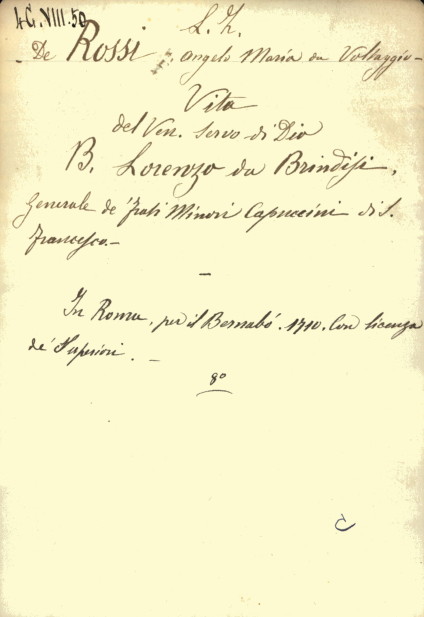 4C.VIII.50
L. Z.
De Rossi P. Angelo Maria da Voltaggio -
Vita
del Ven. Servo di Dio
B. Lorenzo da Brindisi,
Generale de' Frati Minori Capuccini di S.
Francesco. -
-
In Roma, per il Bernabò. 1710. Con licenza
de' Superiori. -
8°
C